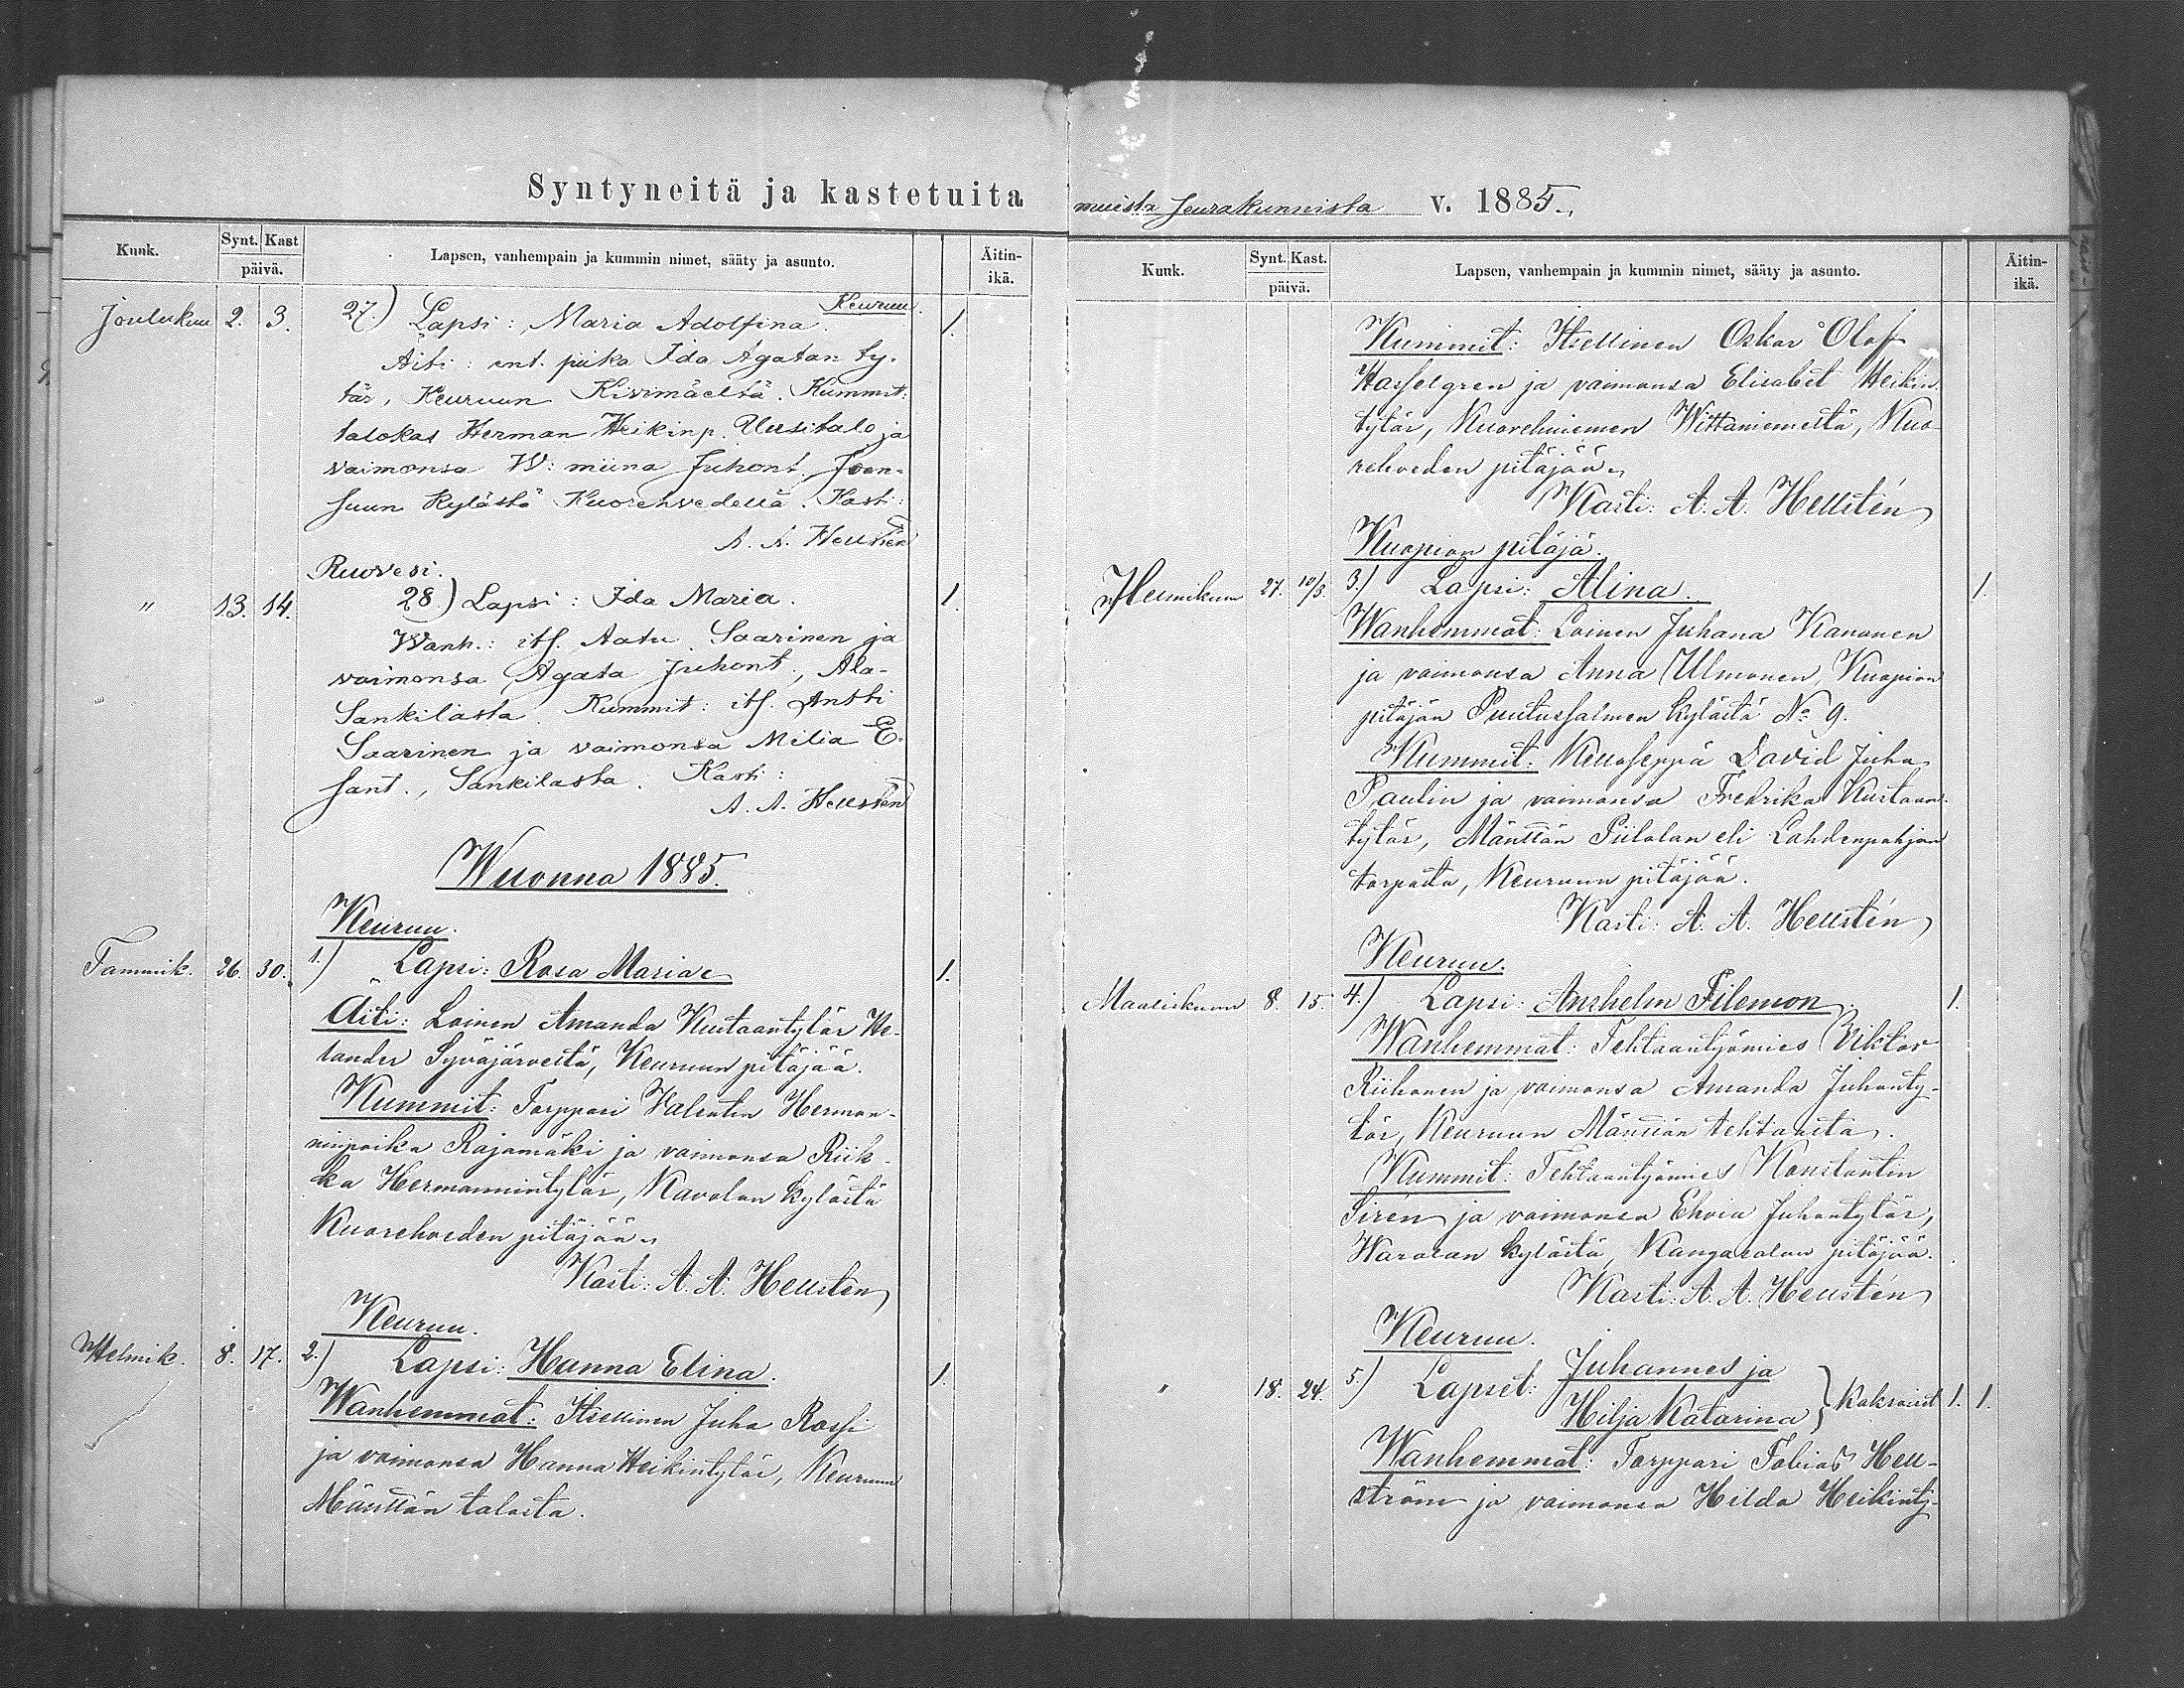 Syntyneitä ja kastetuita
Kuuk. Synt. Kast päivä. Lapsen, vanhempain ja kummin nimet, sääty ja asunto. Äitin-ikä.
Keuruu.
Joulukuu 2. 3. 27.) Lapsi: Maria Adolfina. 1.
Äiti: ent. piika Ida Agatan ty-
tär, Keuruun Kivimäeltä. Kummit:
talokas Herman Heikinp. Uusitalo ja
vaimonsa W:miina Juhont. Joen-
suun kylästä Kuorehvedellä. Kasti:
A. A. Hellstén
Ruovesi.
" 13. 14. 28.) Lapsi: Ida Maria. 1.
Wanh.: its. Aatu Saarinen ja
vaimonsa Agata Juhont., Ala-
Sankilasta. Kummit: its. Antti
Saarinen ja vaimonsa Milia E-
sant., Sankilasta. Kasti:
A. A. Hellstén
Wuonna 1885.
Keuruu.
Tammik. 26. 30. 1.) Lapsi: Rosa Maria 1.
Äiti: Loinen Amanda Kustaantytär He-
lander Syväjärveltä, Keuruun pitäjää.
Kummit: Torppari Valentin Herman-
ninpoika Rajamäki ja vaimonsa Riik-
ka Hermannintytär, Kavalan kylästä
Kuorehveden pitäjää.
Kasti: A. A. Hellstén
Keuruu.
Helmik. 8. 17. 2.) Lapsi: Hanna Elina. 1.
Wanhemmat: Itsellinen Juha Rossi
ja vaimonsa Hanna Heikintytär, Keuruun
Mänttän talosta.
muista seurakunnista v. 1885.
Kuuk. Synt. Kast. päivä. Lapsen, vanhempain ja kummin nimet, sääty ja asunto. Äitin-ikä.
Kummit: Itsellinen Oskar Olof
Hasselgren ja vaimonsa Elisabet Heikin-
tytär, Kuorehniemen Wittaniemestä, Kuo-
rehveden pitäjää.
Kasti: A. A. Hellstén
Kuopion pitäjä.
Helmikuu 27. 10/3. 3.) Lapsi: Alina. 1.
Wanhemmat: Loinen Juhana Kananen
ja vaimonsa Anna Ulmanen, Kuopion
pitäjän Puutussalmen kylästä No 9.
Kummit: Kelloseppä David Juha
Paulin ja vaimonsa Fredrika Kustaan-
tytär, Mänttän Piilolan eli Lahdenpohjan
torpasta, Keuruun pitäjää.
Kasti: A. A. Hellstén
Keuruu.
Maaliskuun 8. 15. 4.) Lapsi: Anshelm Filemon. 1.
Wanhemmat: Tehtaantyömies Viktor
Riihonen ja vaimonsa Amanda Juhanty-
tär, Keuruun Mänttän tehtaasta.
Kummit: Tehtaantyömies Konstantin
Sirén ja vaimonsa Ehvia Juhantytär,
Haralan kylästä, Kangasalan pitäjää.
Kasti: A. A. Hellstén
Keuruu.
" 18. 24. 5.) Lapset: Juhannes ja
Hilja Katarina } Kaksoiset 1. 1.
Wanhemmat: Torppari Tobias Hell-
ström ja vaimonsa Hilda Heikinty-